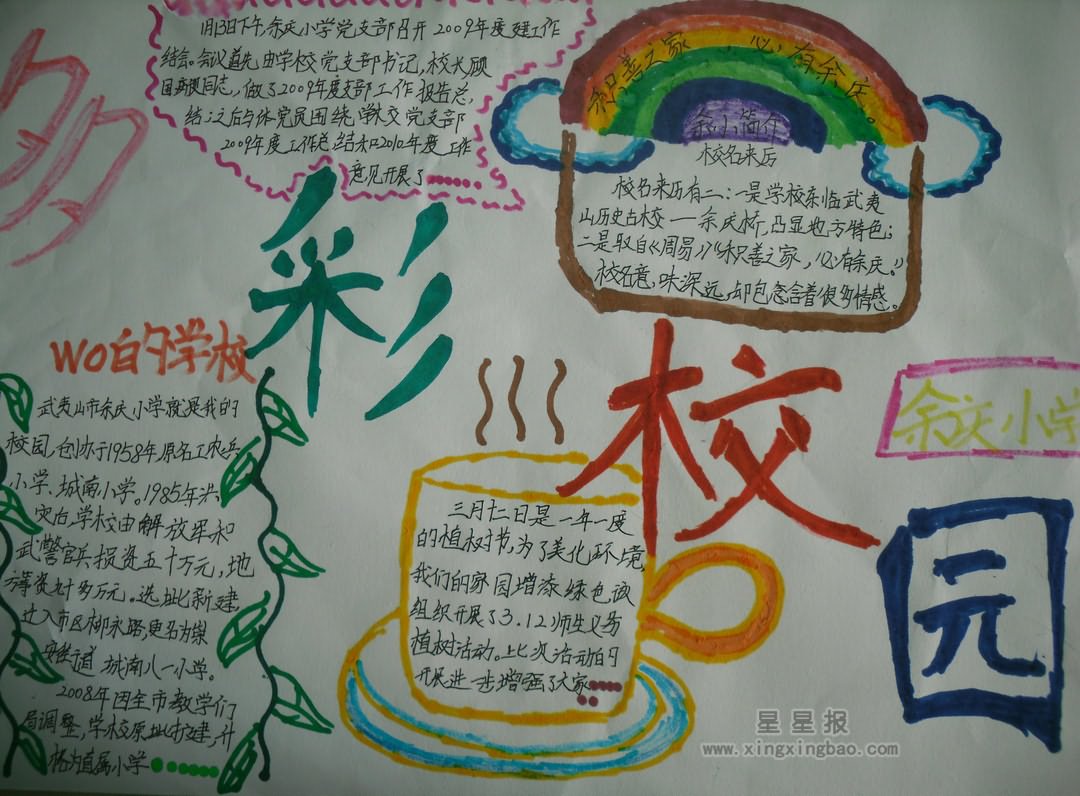 多
彩
校
园
1月13日下午,余庆小学党支部召开2009年度建工作
结会。会议首先由学校党支部书记,校长顾
国同志,做了2009年度支部工作报告总,
结;之后与体党员围绕学校党支部
2009年度工作总结和2010年度工作
意见开展了……
积善之家 必有余庆。
余小简介
校名来历
校名来历有二:一是学校东临武夷
山历史古校——余庆桥,凸显地方特色;
二是取自《周易》《积善之家,必有余庆。》
校名意,味深远,却包含着很多情感。
wo的学校
武夷山市余庆小学就是我的
校园,创办于1958年,原名工农兵
小学、城南小学。1985年洪
灾后,学校由解放军和
武警官兵捐资五十万元,地
方筹资九十多万元。选址新建,
迁入市区柳永路,更名为崇
安街道城南八一小学。
2008年因全市教学们
局调整,学校原址扩建,升
格为直属小学……
三月十二日是一年一度
的植树节,为了美化环境,
我们的家园增添绿色,该
组织开展了3.12师生义务
植树活动。此次活动的
开展进一步增强了大家……
余庆小学
星星报
www.xingxingbao.com